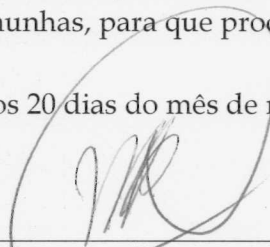 nunhas, para que proc
os 20 dias do mês de